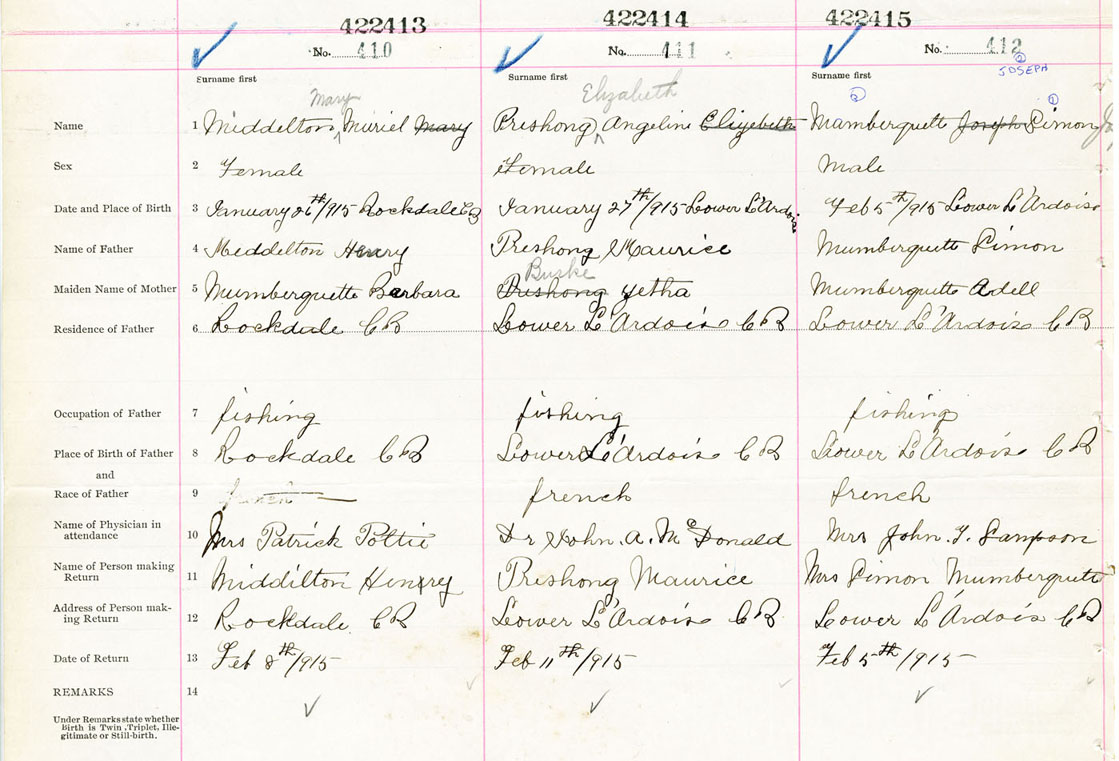 422413 422414 422415
No. 410 No. 411 No. 412
② JOSEPH
Surname first Surname first Surname first
Mary Elizabeth ② ①
Name 1 Middelton, Muriel Mary Preshong, Angeline Eliyebeth Mamberquette Joseph Simon
Sex 2 Female Female Male
Date and Place of Birth 3 January 26th/915 Rockdale CB January 27th/915 Lower L'Ardoise Feb 5th/915 Lower L'Ardoise
Name of Father 4 Middelton Henry Preshong Maurice Mumberquette Simon
Burke
Maiden Name of Mother 5 Mumberguette Barbara Preshong yetha Mumberquette Adell
Residence of Father 6 Rockdale CB Lower L'Ardoise CB Lower L'Ardoise CB
Occupation of Father 7 fishing fishing fishing
Place of Birth of Father 8 Rockdale CB Lower L'Ardoise CB Lower L'Ardoise CB
and
Race of Father 9 french french
Name of Physician in
attendance 10 Mrs Patrick Pottie Dr John. A. McDonald Mrs John. T. Sampson
Name of Person making
Return 11 Middilton Henry Preshong Maurice Mrs Simon Mumberquette
Address of Person mak-
ing Return 12 Rockdale CB Lower L'Ardoise CB Lower L'Ardoise CB
Date of Return 13 Feb 8th/915 Feb 11th/915 Feb 5th/915
REMARKS 14
Under Remarks state whether
Birth is Twin, Triplet, Ille-
gitimate or Still-birth.